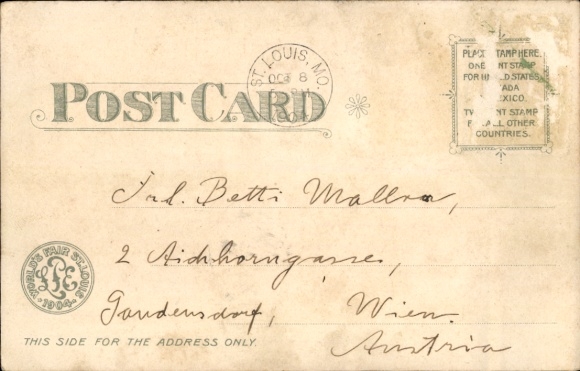 ST. LOUIS, MO.
OCT 8
1904
POST CARD
PLACE STAMP HERE.
ONE CENT STAMP
FOR UNITED STATES
CANADA
MEXICO.
TWO CENT STAMP
FOR ALL OTHER
COUNTRIES.
Frl. Betti Mallva,
2 Aichhorngasse,
Gaudensdorf, Wien.
Austria
WORLD'S FAIR ST. LOUIS
1904
LPE
THIS SIDE FOR THE ADDRESS ONLY.